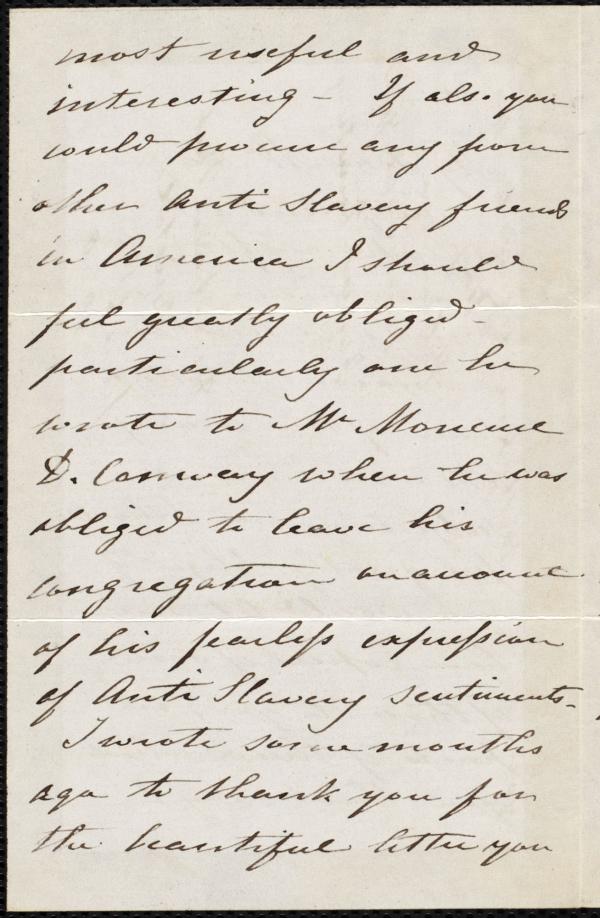 most useful and
interesting - If also you
could procure any from
other Anti Slavery friends
in America I should
feel greatly obliged -
particularly one he
wrote to Mr Moncure
D. Conway when he was
obliged to leave his
congregation on account
of his fearless expression
of Anti Slavery sentiments -
I wrote some months
ago to thank you for
the beautiful letter you